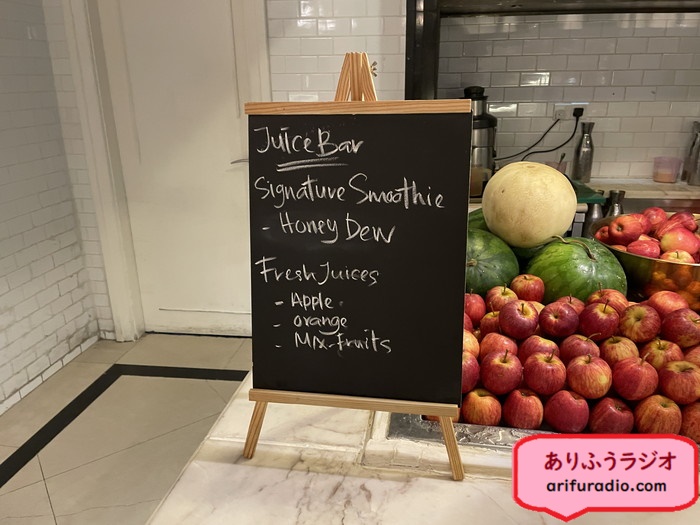 Juice Bar
Signature Smoothie
- Honey Dew
Fresh Juices
- Apple
- orange
- Mix-Fruits
ありふうラジオ
arifuradio.com